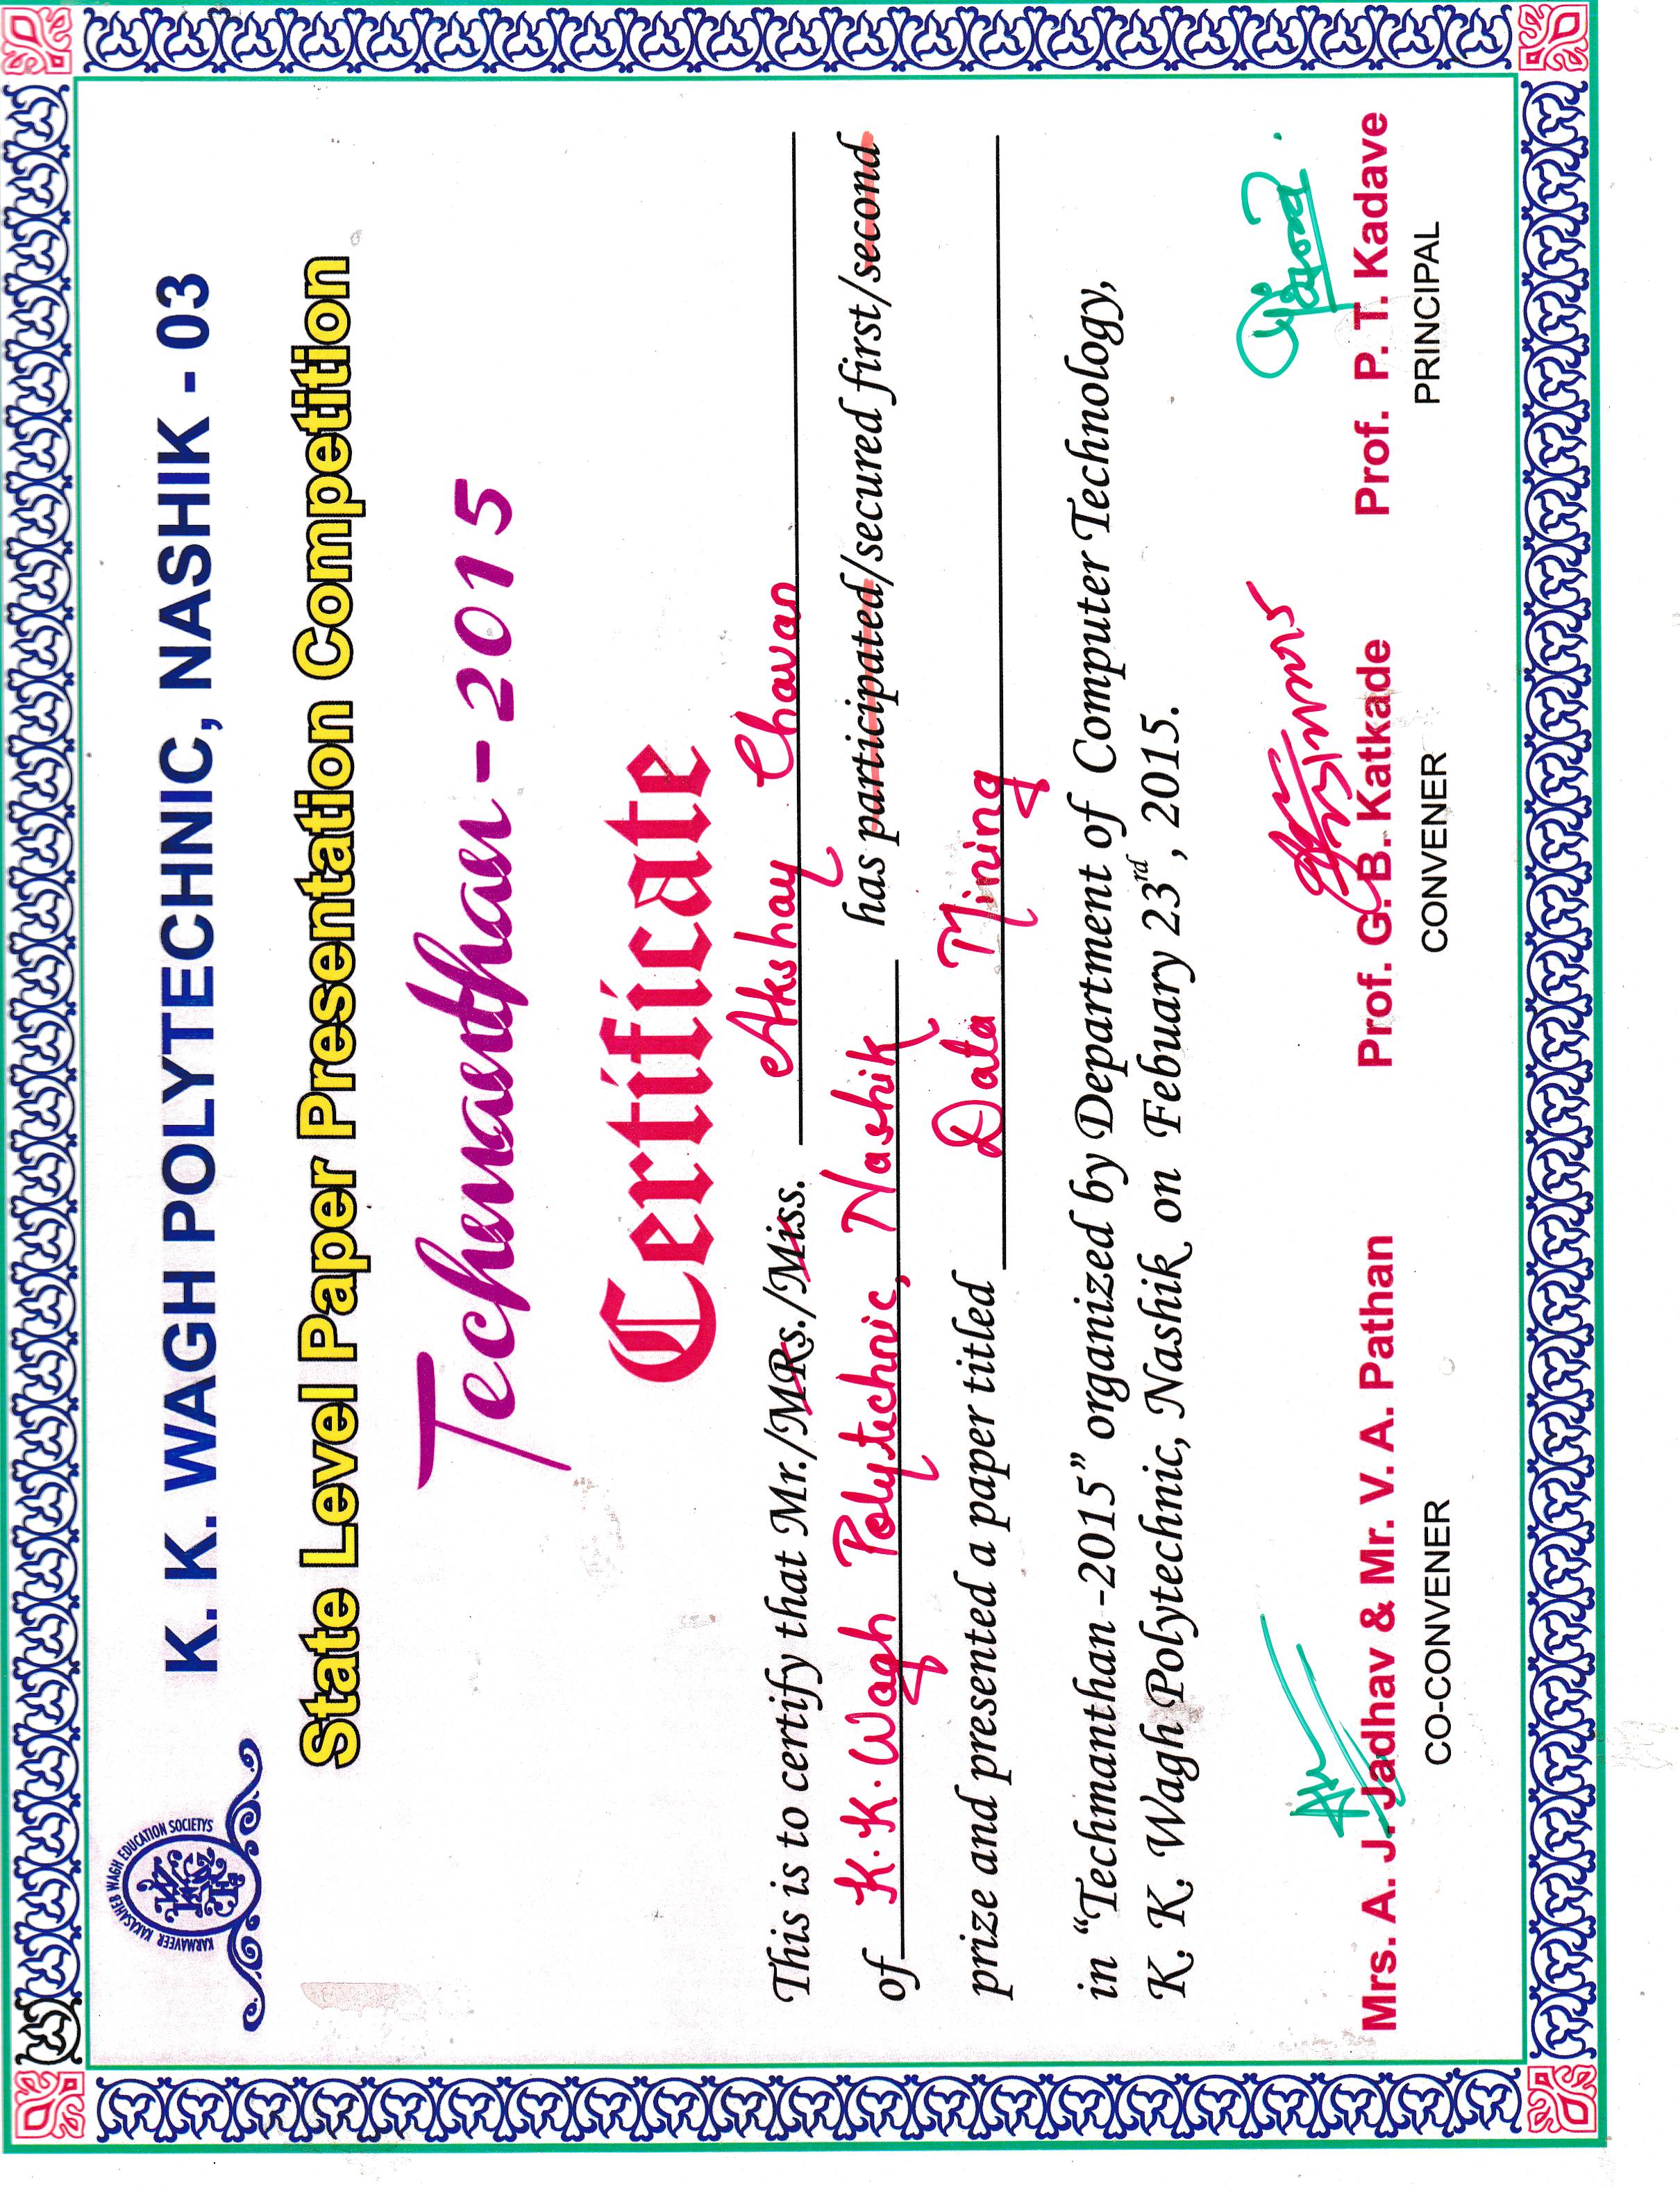 KARMAVEER KAKASAHEB WAGH EDUCATION SOCIETYS
K. K. WAGH POLYTECHNIC, NASHIK - 03
State Level Paper Presentation Competition
Techmanthan-2015
Certificate
This is to certify that Mr./MRs./Miss. Akshay Chavan
of K.K.Wagh Polytechnic, Nashik has participated/secured first/second
prize and presented a paper titled Data Mining
in “Techmanthan -2015” organized by Department of Computer Technology,
K. K. Wagh Polytechnic, Nashik on Febuary 23rd, 2015.
Mrs. A. J. Jadhav & Mr. V. A. Pathan Prof. G. B. Katkade Prof. P. T. Kadave
CO-CONVENER CONVENER PRINCIPAL